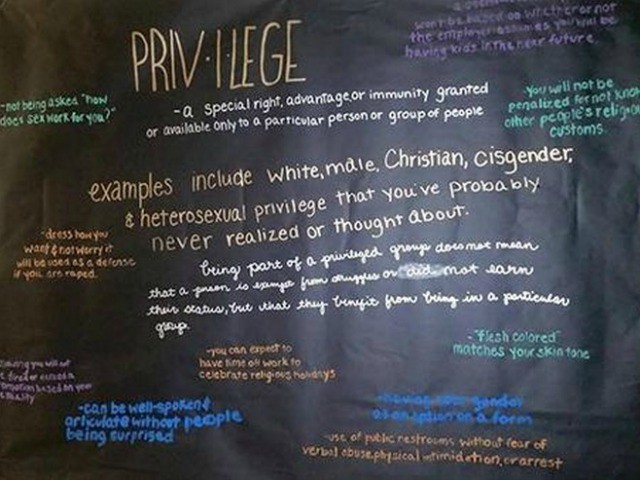 won't be based on whether or not
the employer assumes you will be
having kids in the near future.
PRIV·I·LEGE
-a special right, advantage, or immunity granted
or available only to a particular person or group of people
-not being asked "how
does sex work for you?"
-You will not be
penalized for not
other people's
customs.
examples include white, male, Christian, cisgender,
& heterosexual privilege that you've probably
never realized or thought about.
-dress how you
want & not worry it
will be used as a defense
if you are raped.
being part of a privileged group does not mean
that a person is exempt from struggles or did not earn
their status, but that they benefit from being in a particular
group.
-"flesh colored"
matches your skin tone
-you can expect to
have time off work to
celebrate religious holidays
-can be well-spoken &
articulate without people
being surprised
-having your gender
as an option on a form
-use of public restrooms without fear of
verbal abuse, physical intimidation, or arrest